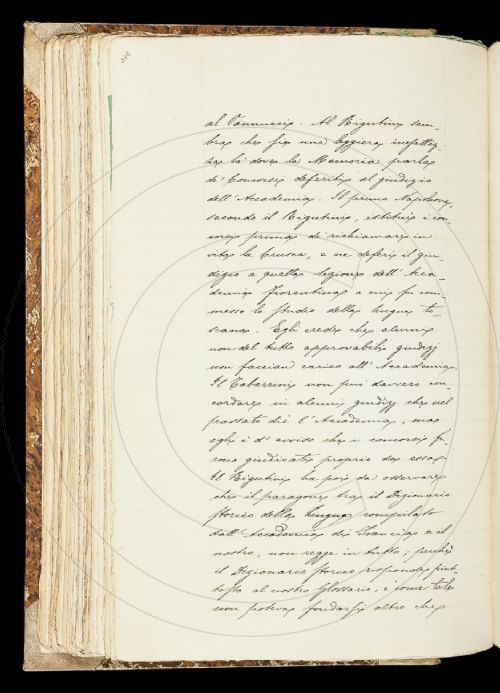 al Vannucci. Al Rigutini sem-
bra che sia una leggiera inesattez-
za là dove la Memoria parla
de' Concorsi deferiti al giudizio
dell'Accademia. Il primo Napoleone,
secondo il Rigutini, istituì i con-
corsi prima di richiamare in
vita la Crusca, e ne deferì il giu-
dizio a quella sezione dell'Acca-
demia fiorentina a cui fu com-
messo lo studio della lingua to-
scana. Egli crede che alcuni
non del tutto approvabili giudizj
non faccian carico all'Accademia.
Il Tabarrini non può davvero con-
cordare in alcuni giudizj che nel
passato diè l'Accademia, ma
egli è d'avviso che i concorsi fu-
rono giudicati proprio da essa.
Il Rigutini ha poi da osservare
che il paragone tra il Dizionario
storico della lingua compilato
dall'Accademia di Francia e il
nostro, non regge in tutto; perchè
il Dizionario storico risponde piut-
tosto al nostro Glossario, e come tale
non poteva fondarsi altro che